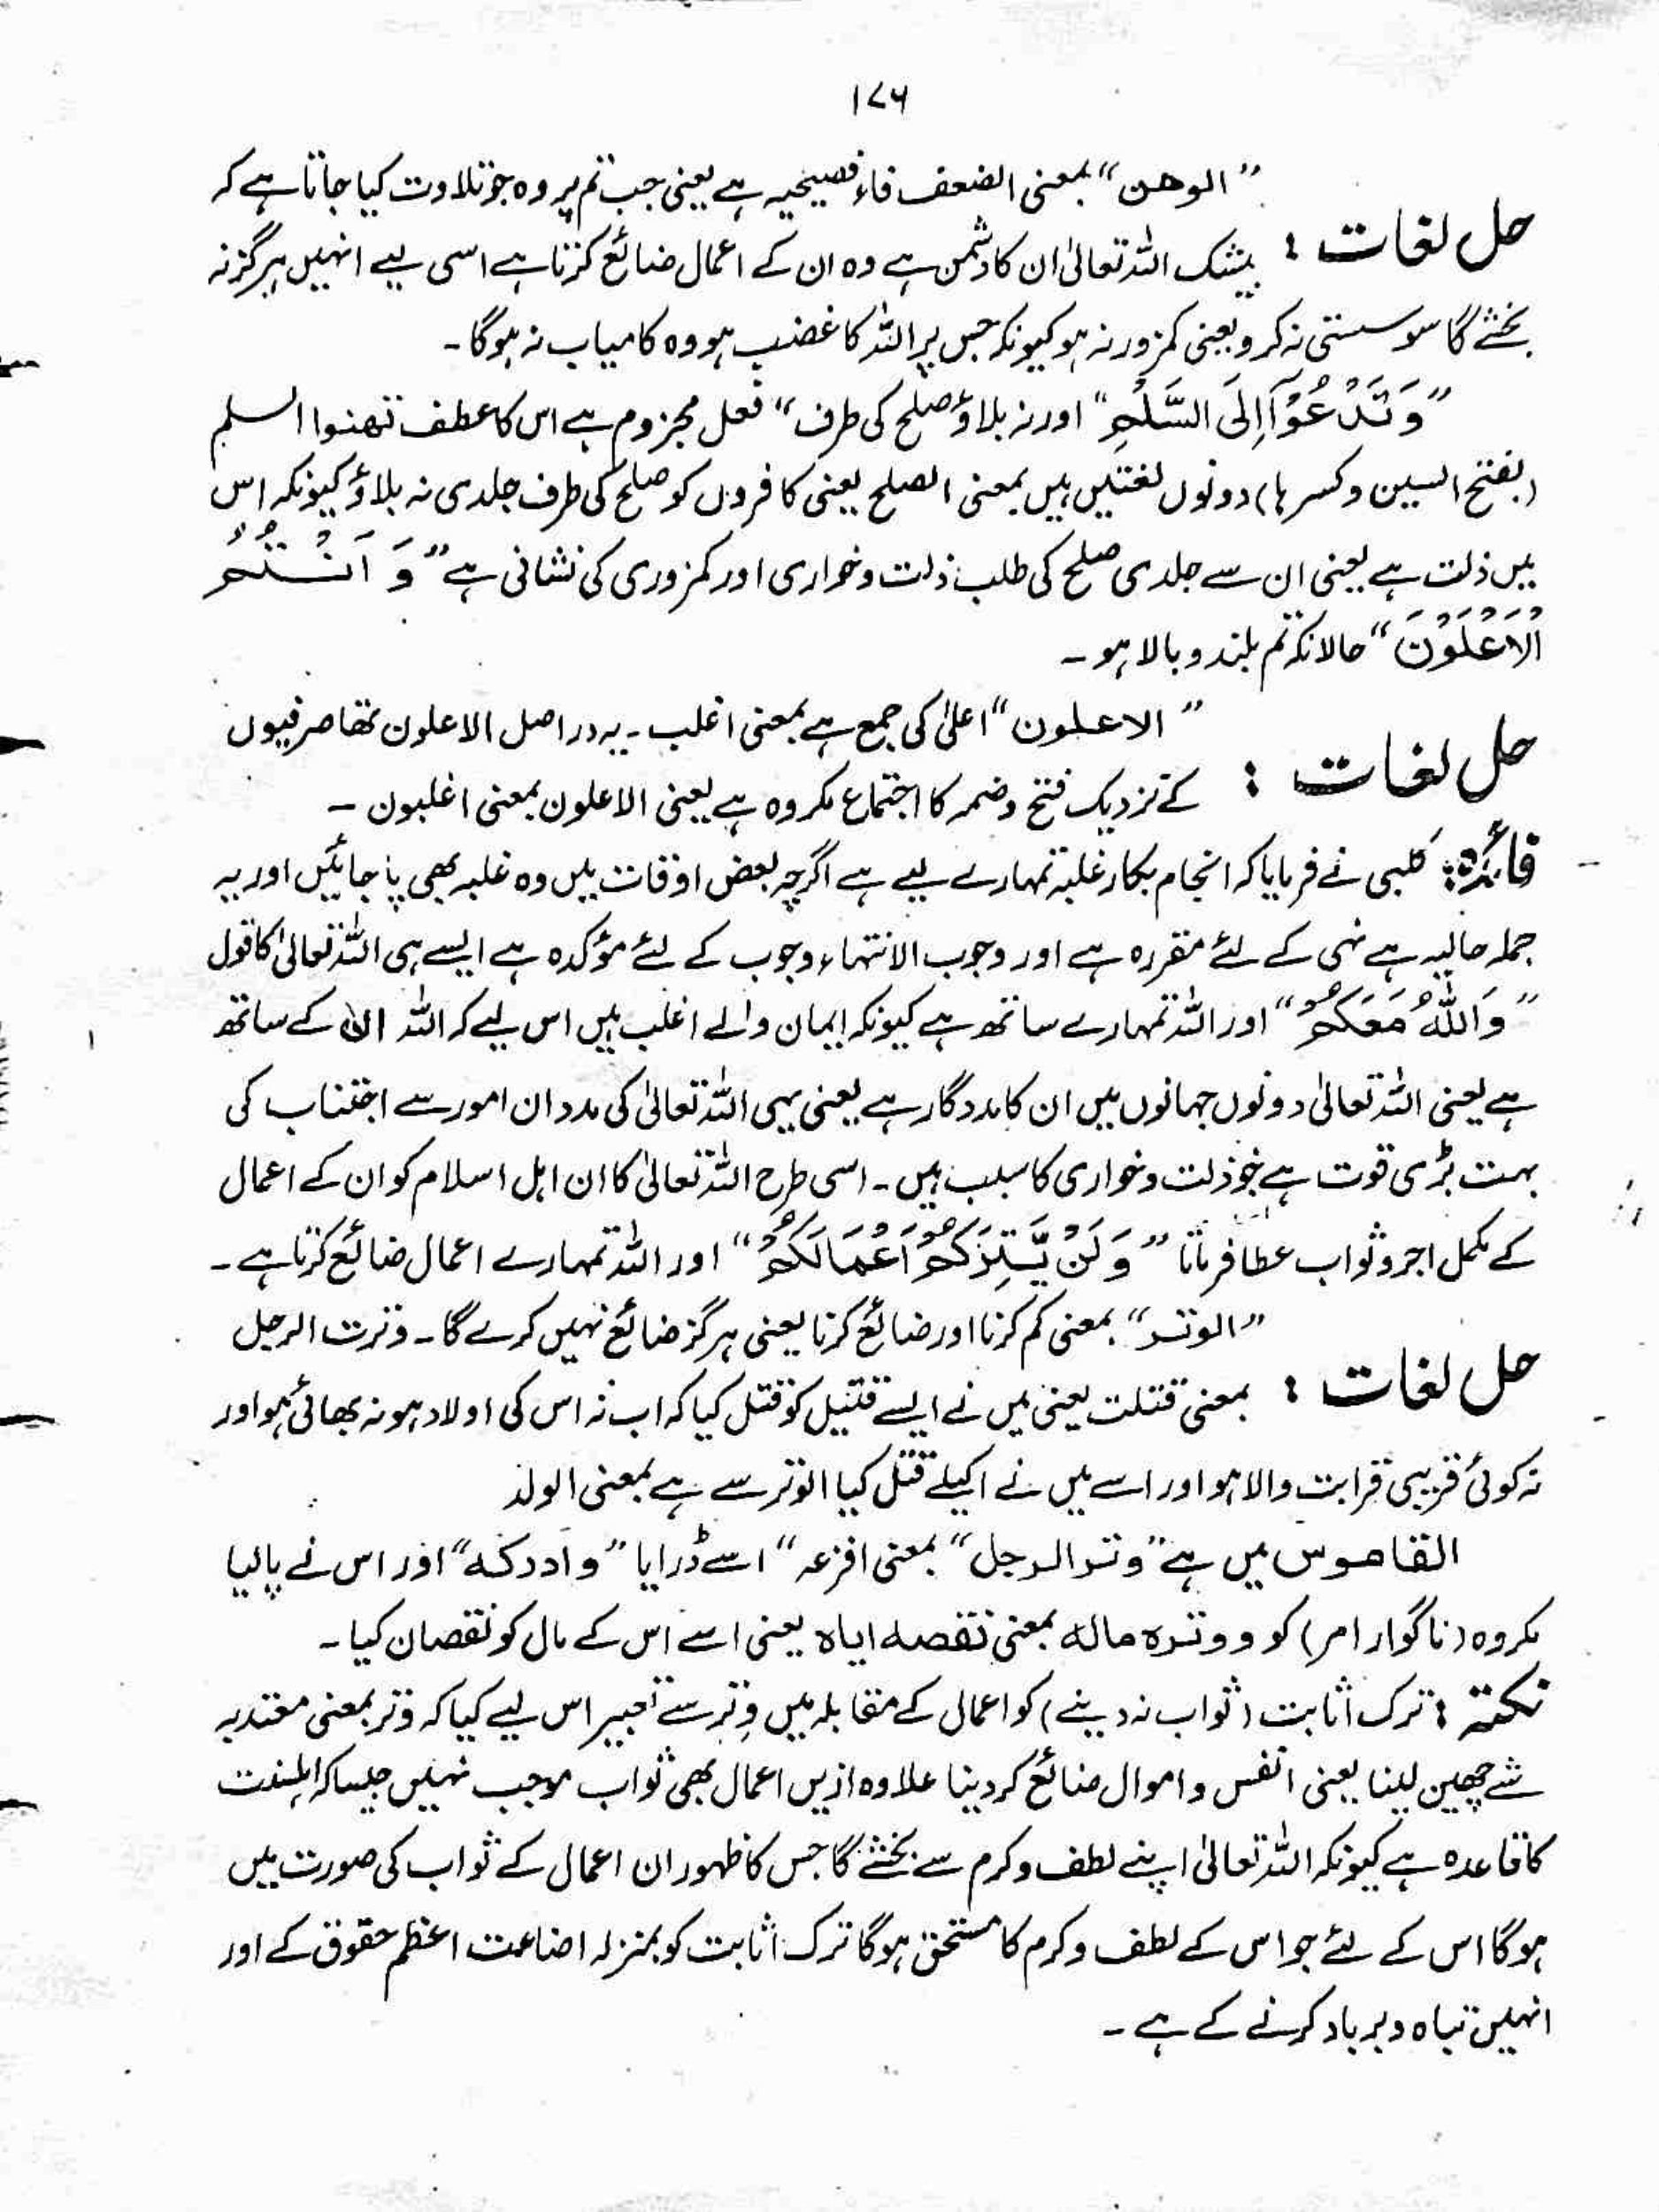 ۱۷۶
حل لغات : "الوھن" بمعنی الضعف فاء فصیحیہ ہے یعنی جب تم پر وہ جو تلاوت کیا جاتا ہے کہ
بیشک اللہ تعالیٰ ان کا دشمن ہے وہ ان کے اعمال ضائع کرتا ہے اسی لیے انہیں ہرگز نہ
بخشے گا سو سستی نہ کرو یعنی کمزور نہ ہو کیونکہ جس پر اللہ کا غضب ہو وہ کامیاب نہ ہوگا۔
"وَتَدْعُوْٓا اِلَی السَّلْمِ" اور نہ بلاؤ صلح کی طرف" فعل مجزوم ہے اس کا عطف تھنوا السلم
(بفتح السین وکسرہا) دونوں لغتیں ہیں بمعنی الصلح یعنی کافروں کو صلح کی طرف جلدی نہ بلاؤ کیونکہ اس
میں ذلت ہے یعنی ان سے جلدی صلح کی طلب ذلت وخواری اور کمزوری کی نشانی ہے "وَ اَنْتُمُ
الْاَعْلَوْنَ" حالانکہ تم بلند و بالا ہو۔
حل لغات : "الاعلون" اعلیٰ کی جمع ہے بمعنی اغلب۔ یہ دراصل الاعلون تھا صرفیوں
کے نزدیک فتح وضمہ کا اجتماع مکروہ ہے یعنی الاعلون بمعنی اغلبون۔
فائدہ: کلبی نے فرمایا کہ انجام بکار غلبہ تمہارے لیے ہے اگرچہ بعض اوقات میں وہ غلبہ بھی پا جائیں اور یہ
جملہ حالیہ ہے نہی کے لئے مقررہ ہے اور وجوب الانتہاء وجوب کے لئے مؤکدہ ہے ایسے ہی اللہ تعالیٰ کا قول
"وَاللّٰهُ مَعَكُمْ" اور اللہ تمہارے ساتھ ہے کیونکہ ایمان والے اغلب ہیں اس لیے کہ اللہ ان کے ساتھ
ہے یعنی اللہ تعالیٰ دونوں جہانوں میں ان کا مددگار ہے یعنی یہی اللہ تعالیٰ کی مدد ان امور سے اجتناب کی
بہت بڑی قوت ہے جو ذلت وخواری کا سبب ہیں۔ اسی طرح اللہ تعالیٰ کا ان اہل اسلام کو ان کے اعمال
کے مکمل اجر وثواب عطا فرمانا "وَلَنْ يَّتِرَكُمْ اَعْمَالَكُمْ" اور اللہ تمہارے اعمال ضائع کرتا ہے۔
حل لغات : "الوتر" بمعنی کم کرنا اور ضائع کرنا یعنی ہرگز ضائع نہیں کرے گا۔ وترت الرجل
بمعنی قتلت یعنی میں نے ایسے قتیل کو قتل کیا کہ اب نہ اس کی اولاد ہو نہ بھائی ہو اور
نہ کوئی قریبی قرابت والا ہو اور اسے میں نے اکیلے قتل کیا الوتر سے ہے بمعنی الولد
القاموس میں ہے "وتر الرجل" بمعنی افزعہ" اسے ڈرایا "وادرکہ" اور اس نے پالیا
مکروہ (ناگوار امر) کو و وترہ مالہ بمعنی نقصہ ایاہ یعنی اسے اس کے مال کو نقصان کیا۔
نکتہ : ترک اثابت (ثواب نہ دینے) کو اعمال کے مقابلہ میں وِتر سے تعبیر اس لیے کیا کہ وتر بمعنی معتدبہ
شے چھین لینا یعنی انفس و اموال ضائع کر دینا علاوہ ازیں اعمال بھی ثواب موجب نہیں جیسا کہ اہلسنت
کا قاعدہ ہے کیونکہ اللہ تعالیٰ اپنے لطف وکرم سے بخشے گا جس کا ظہور ان اعمال کے ثواب کی صورت میں
ہوگا اس کے لئے جو اس کے لطف وکرم کا مستحق ہوگا ترک اثابت کو بمنزلہ اضاعت اعظم حقوق کے اور
انہیں تباہ و برباد کرنے کے ہے۔